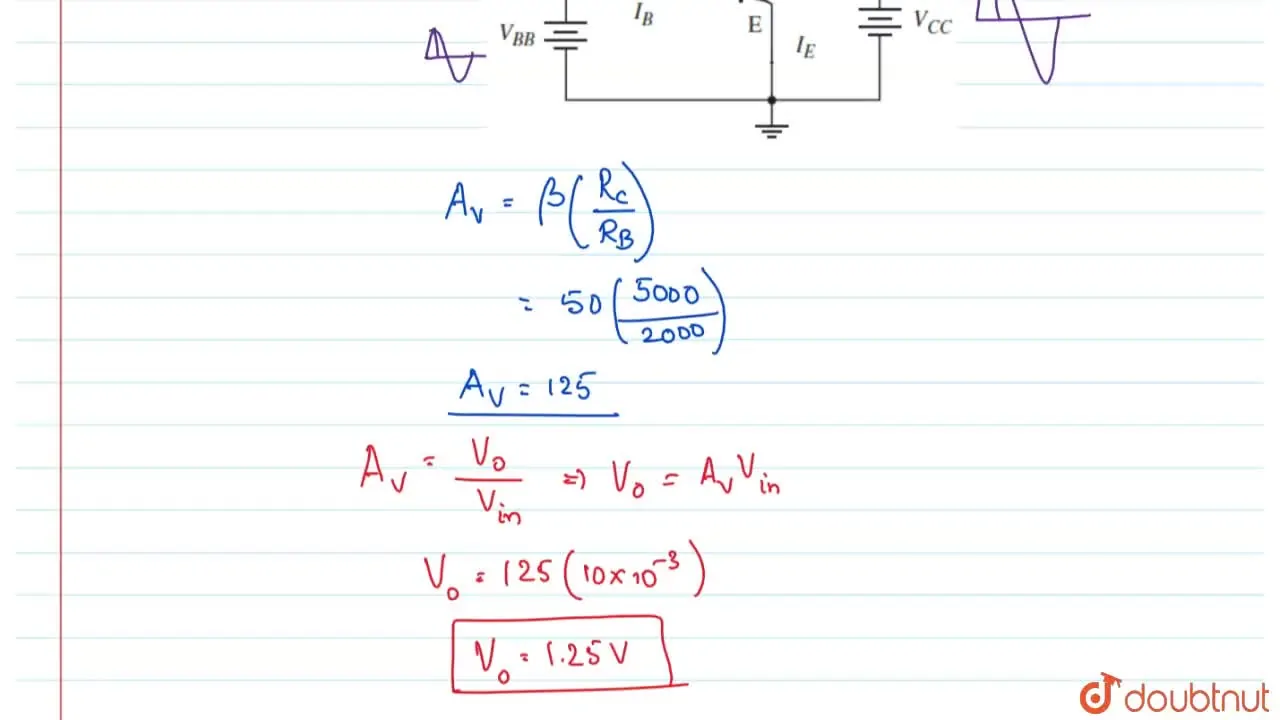 I_B
E
V_BB
I_E
V_CC
A_v = β(R_C/R_B)
= 50(5000/2000)
A_V = 125
A_V = V_0/V_in ⇒ V_0 = A_V V_in
V_0 = 125(10×10^-3)
V_0 = 1.25 V
doubtnut